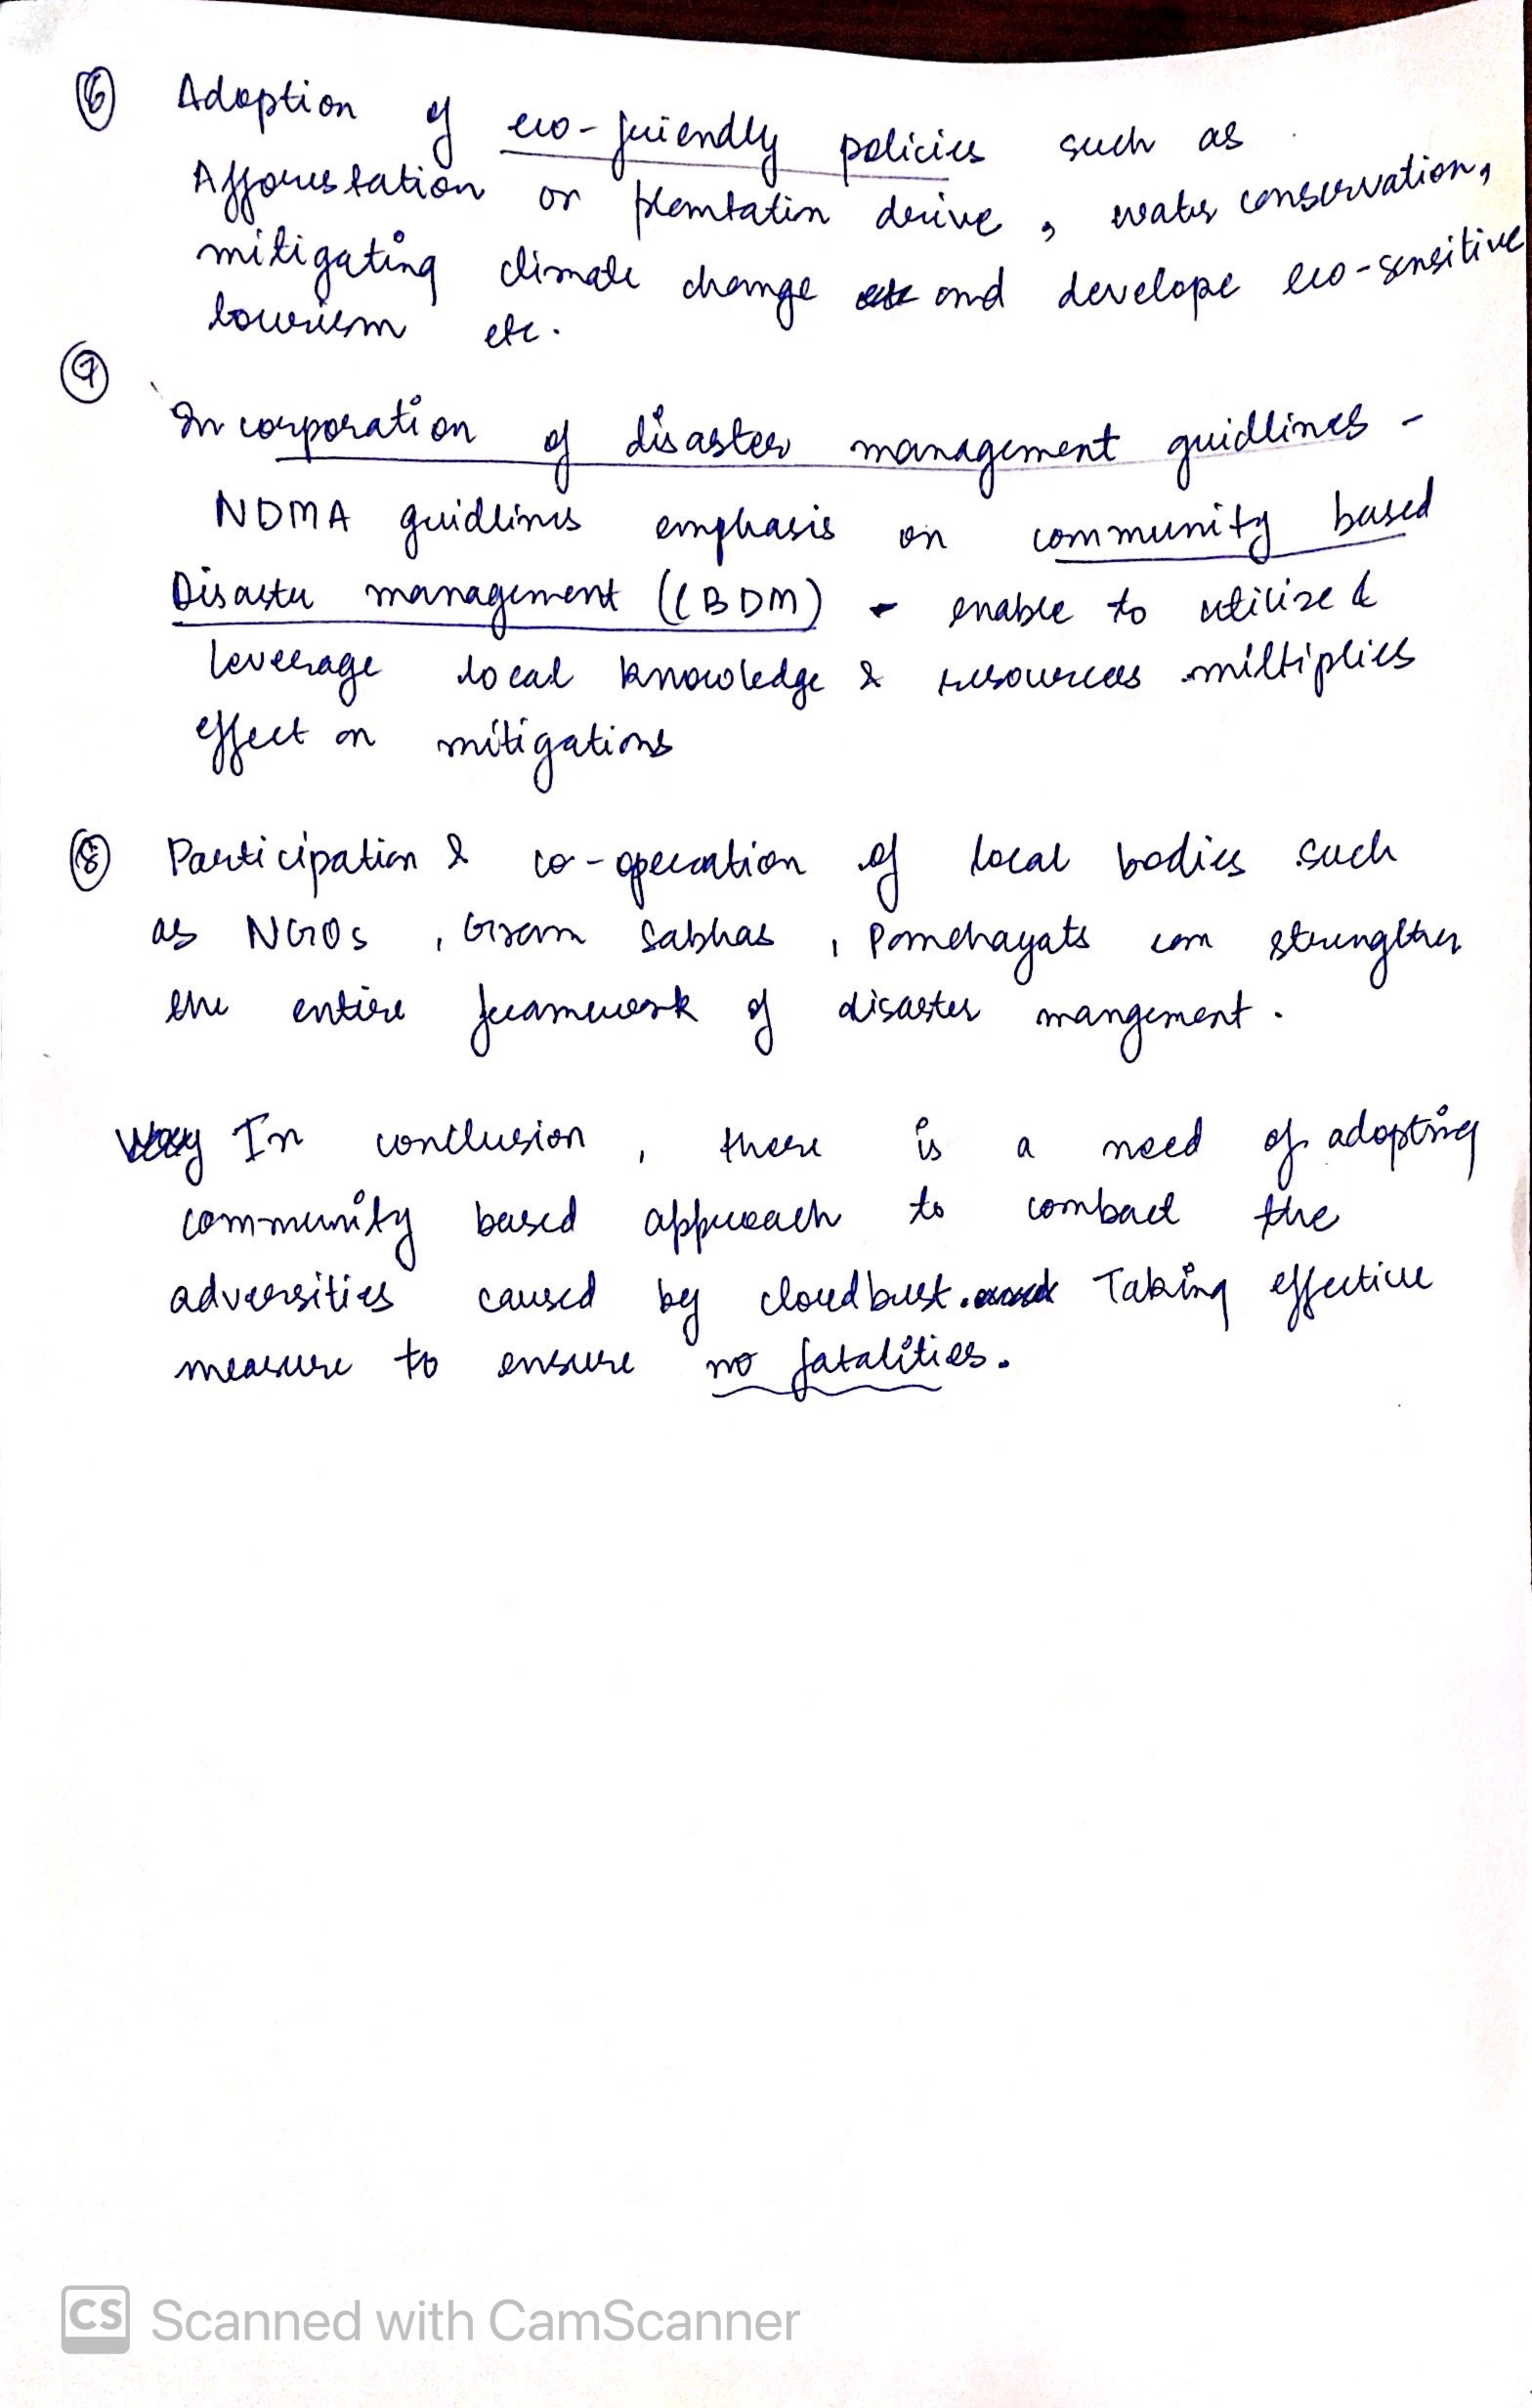 ⑥ Adoption of eco-friendly policies such as
Afforestation or plantatin drive, water conservation,
mitigating climate change and develope eco-sensitive
tourism etc.
⑦
Incorporation of disaster management guidlines -
NDMA guidlines emphasis on community based
Disaster management (CBDM) - enable to utilize &
leverage local knowledge & resources miltiplies
effect on mitigations
⑧ Participation & co-operation of local bodies such
as NGOs, Gram Sabhas, Panchayats can strengthen
the entire framework of disaster mangement.
In conclusion, there is a need of adopting
community based approach to combact the
adversities caused by cloudbust. Taking effective
measure to ensure no fatalities.
CS Scanned with CamScanner